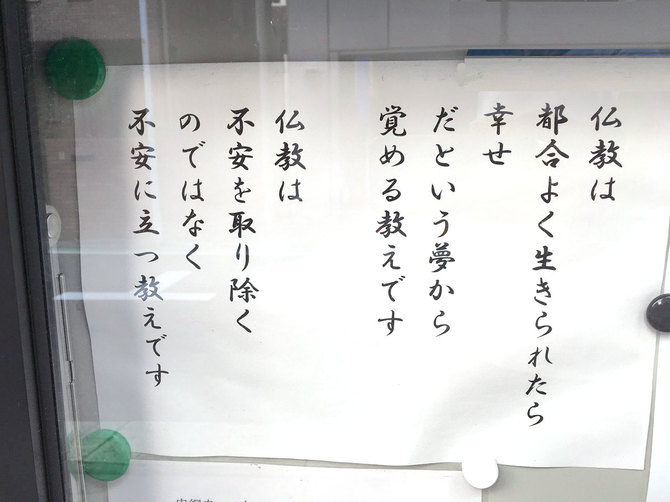 仏教は
都合よく生きられたら
幸せ
だという夢から
覚める教えです
仏教は
不安を取り除く
のではなく
不安に立つ教えです